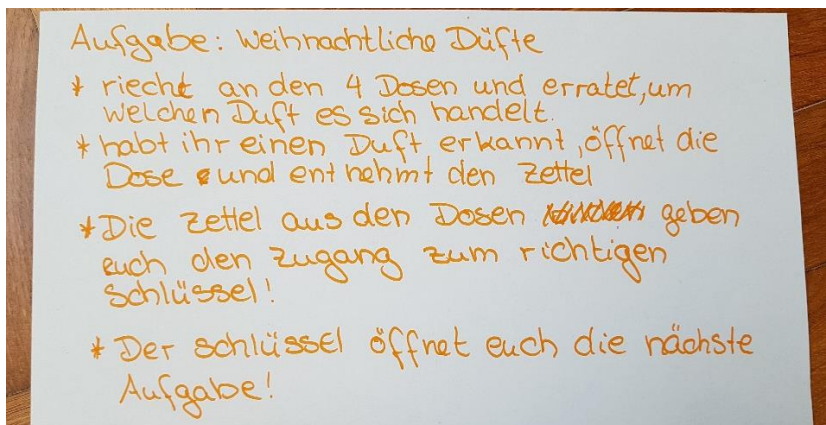 Aufgabe: Weihnachtliche Düfte
* riecht an den 4 Dosen und erratet, um
welchen Duft es sich handelt.
* habt ihr einen Duft erkannt, öffnet die
Dose und entnehmt den Zettel
* Die Zettel aus den Dosen geben
euch den Zugang zum richtigen
Schlüssel!
* Der Schlüssel öffnet euch die nächste
Aufgabe!